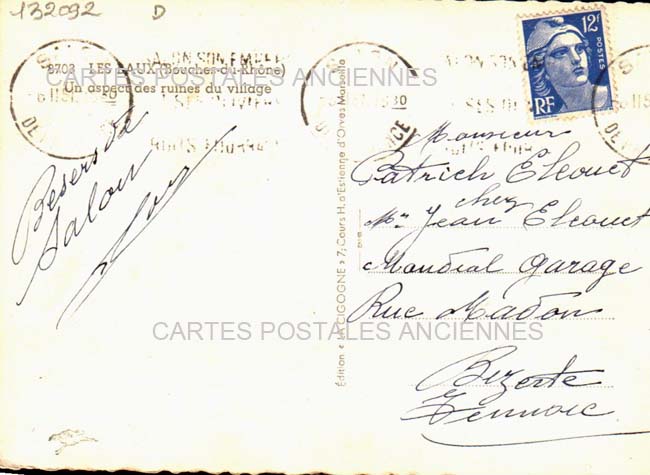 132092 D
8703 - LES BAUX (Bouches-du-Rhône)
Un aspect des ruines du village
CARTES POSTALES ANCIENNES
12F
POSTES
RF
Besers de
Salon
Édition « LA CIGOGNE » 7, Cours H. d'Estienne d'Orves Marseille
Monsieur
Patrick Elcouet
chez
Mr Jean Elcouet
Mondial Garage
Rue Madon
Bizerte
CARTES POSTALES ANCIENNES